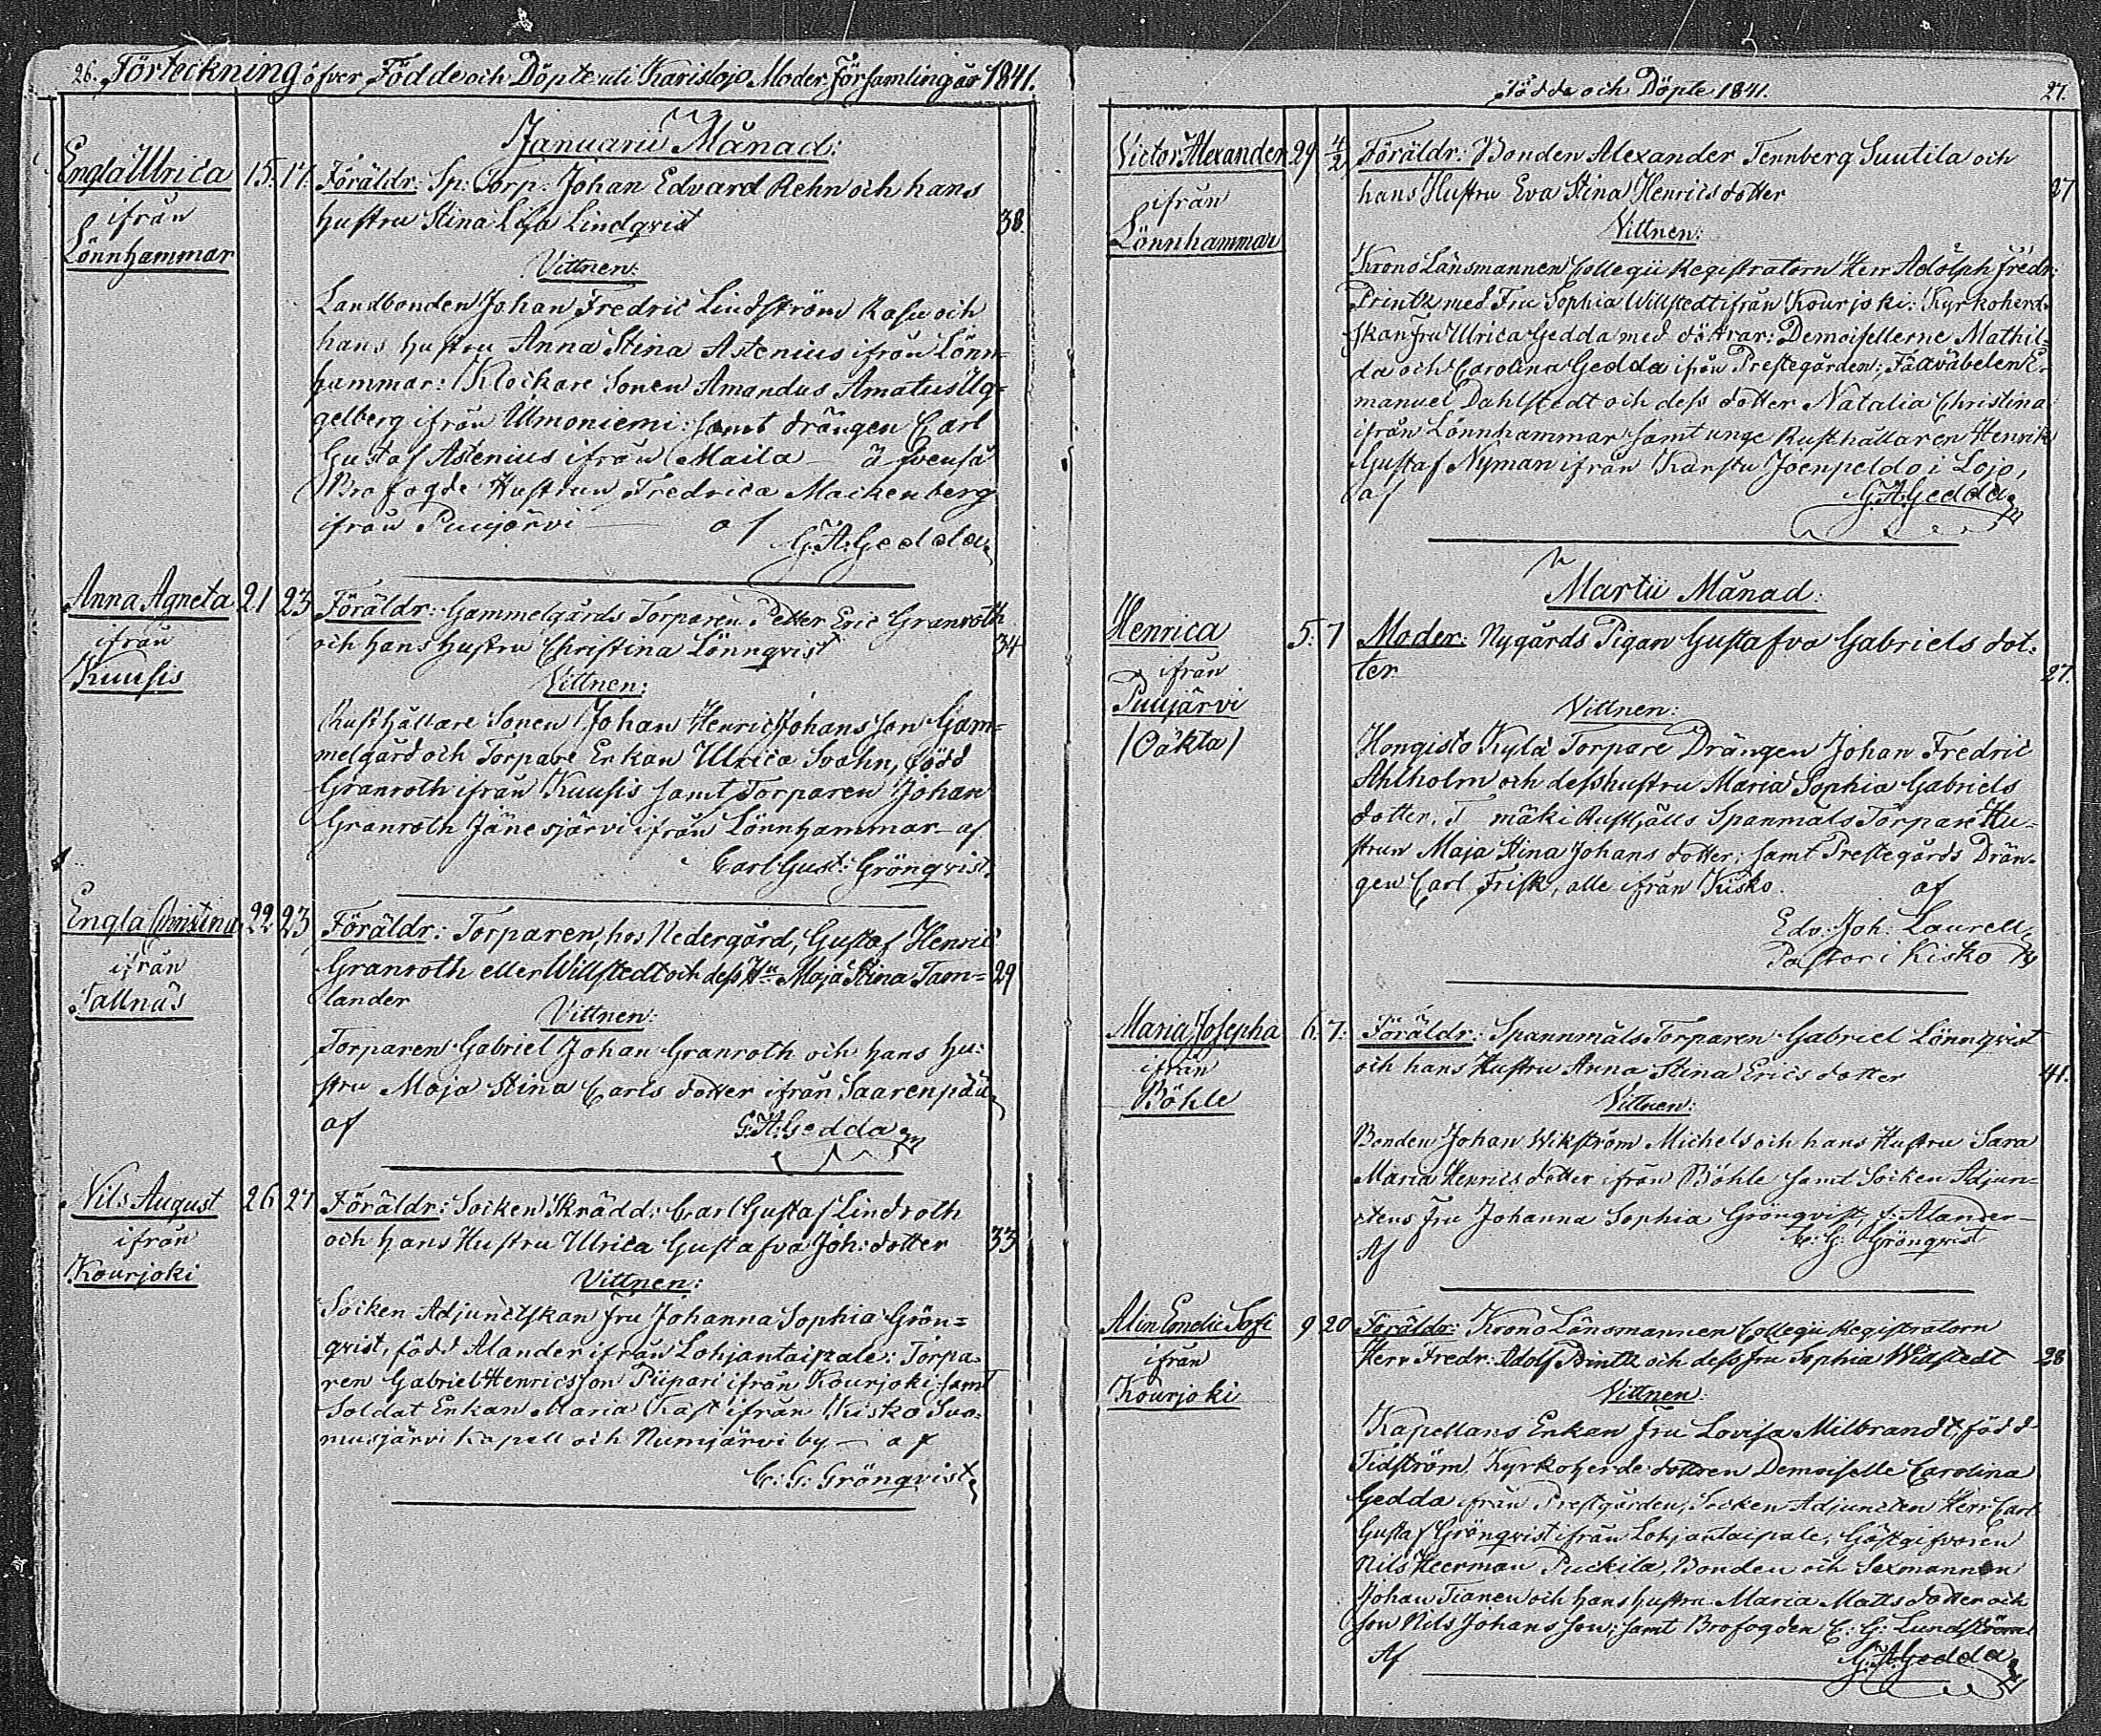 26. Förteckning öfver Födde och Döpte uti Karislojo Moder Församling år 1841.
Januarii Månad:
Engla Ulrica 15. 17. Föräldr: Sp: Torp: Johan Edvard Rehn och hans
ifrån hustru Stina Lisa Lindqvist 38.
Lönnhammar
Vittnen:
Landbonden Johan Fredric Lindström Rasu och
hans hustru Anna Stina Astenius ifrån Lönn=
hammar: Klockare Sonen Amandus Amatus Ug=
gelberg ifrån Ulmoniemi: samt drängen Carl
Gustaf Astenius ifrån Maila äfvenså
Brofogde Hustrun Fredrica Mackenberg
ifrån Puujärvi af
G. A: Gedda
Anna Agneta 21 23 Föräldr: Gammelgårds Torparen Petter Eric Granroth
ifrån och hans hustru Christina Lönnqvist 34
Kuusis
Vittnen:
Rusthållare Sonen Johan Henric Johansson Gam=
melgård och Torpare Enkan Ulrica Svahn, född
Granroth ifrån Kuusis samt Torparen Johan
Granroth Jänesjärvi ifrån Lönnhammar af
Carl Gust: Grönqvist.
Engla Christina 22 23 Föräldr: Torparen, hos Nedergård, Gustaf Henric
ifrån Granroth eller Willstedt och dess Hu Maja Stina Tam= 29
Tallnäs lander
Vittnen:
Torparen Gabriel Johan Granroth och hans hu:
stru Maja Stina Carls dotter ifrån Saarenpää
af G. A: Gedda
Nils August 26 27 Föräldr: Socken Skrädd: Carl Gustaf Lindroth
ifrån och hans Hustru Ulrica Gustafva Joh: dotter 33
Kourjoki
Vittnen:
Socken Adjunctskan fru Johanna Sophia Grön=
qvist, född Alander ifrån Lohjantaipale: Torpa=
ren Gabriel Henricsson Piipari ifrån Kourjoki samt
Soldat Enkan Maria Kast ifrån Kisko Suo-
musjärvi Kapell och Numjärvi by af
C: G: Grönqvist
Födde och Döpte 1841. 27.
Victor Alexander 29 4/2 Föräldr: Bonden Alexander Tennberg Suutila och
ifrån hans Hustru Eva Stina Henrics dotter 27
Lönnhammar
Vittnen:
Krono Länsmannen Collegii Registratorn Herr Adolph Fredr:
Printz med Fru Sophia Willstedt ifrån Kourjoki: Kyrkoherd-
skan Fru Ulrica Gedda med döttrar: Demoisellerne Mathil=
da och Carolina Gedda ifrån Prestegården: Fältväbelen E-
manuel Dahlstedt och dess dotter Natalia Christina
ifrån Lönnhammar samt unge Rusthållaren Henrik
Gustaf Nyman ifrån Karstu Joenpeldo i Lojo,
af G. A: Gedda
Martii Månad:
Henrica 5. 7 Moder: Nygårds Pigan Gustafva Gabriels dot-
ifrån ter 27.
Puujärvi
/Oäkta/
Vittnen:
Hongisto Kylä Torpare Drängen Johan Fredric
Ahlholm och dess hustru Maria Sophia Gabriels
dotter, T mäki Rusthålls Spanmåls Torpare Hu=
strun Maja Stina Johans dotter; samt Prestegårds Drän-
gen Carl Frisk, alle ifrån Kisko. af
Edv: Joh: Laurell
Pastor i Kisko
Maria Josepha 6. 7. Föräldr: Spannmåls Torparen Gabriel Lönnqvist
ifrån och hans Hustru Anna Stina Erics dotter 41.
Böhle
Vittnen:
Bonden Johan Wikström Michels och hans Hustru Sara
Maria Henrics dotter ifrån Böhle samt Socken Adjun=
ctens fru Johanna Sophia Grönqvist, f: Alander
Af C: G: Grönqvist
Alin Emelie Sofi 9 20 Föräldr: Krono Länsmannen Collegii Registratorn
ifrån Herr Fredr: Adolf Printz och dess fru Sophia Willstedt 28
Kourjoki
Vittnen
Kapellans Enkan fru Lovisa Milbrandt, född
Tidström Kyrkoherde dottren Demoiselle Carolina
Gedda ifrån Prestgården, Socken Adjuncten Herr Carl
Gustaf Grönqvist ifrån Lohjantaipale, Gästgifvaren
Nils Heerman Puckila, Bonden och Sexmannen
Johan Tianen och hans hustru Maria Matts dotter och
son Nils Johansson; samt Brofogden C: G: Lundström
Af G. A: Gedda